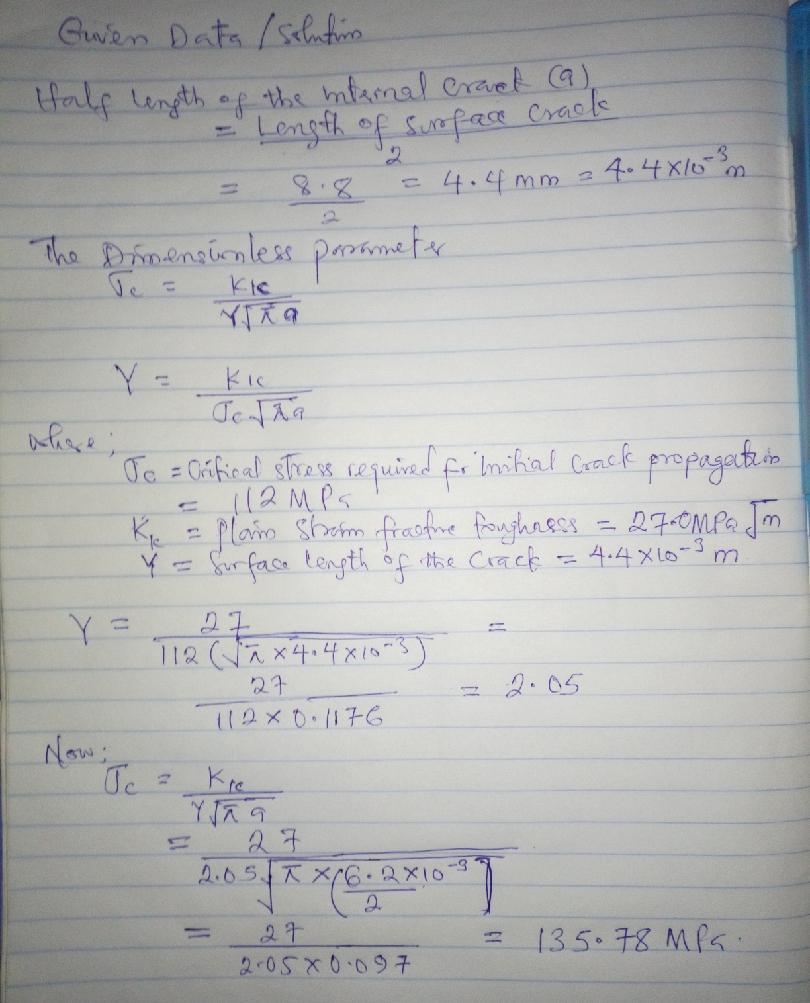 Given Data / Solution
Half length of the internal crack (a)
= Length of surface crack
2
= 8.8/2 = 4.4 mm = 4.4 x 10⁻³ m
The Dimensionless parameter
σc = KIc / Y√πa
Y = KIc / σc√πa
where;
σc = Critical stress required for initial crack propagation
= 112 MPa
KIc = plain strain fracture toughness = 27.0 MPa √m
Y = Surface length of the crack = 4.4 x 10⁻³ m
Y = 27 / 112 (√π x 4.4 x 10⁻³) =
27 / 112 x 0.1176 = 2.05
Now;
σc = KIc / Y√πa
= 27 / 2.05 √π x (6.2 x 10⁻³ / 2)
= 27 / 2.05 x 0.097 = 135.78 MPa.